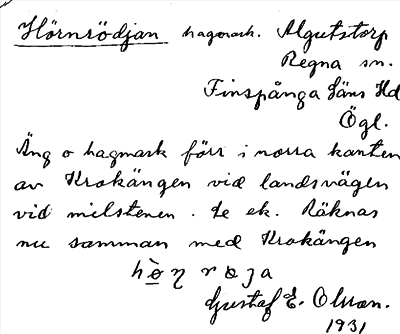 Hörnrödjan hagmark. Algutstorp
Regna sn.
Finspånga läns Hd
Ögl.
Äng o hagmark förr i norra kanten
av Krokängen vid landsvägen
vid milstenen. Se ek. Räknas
nu samman med Krokängen
Gustaf E. Olsson.
1931